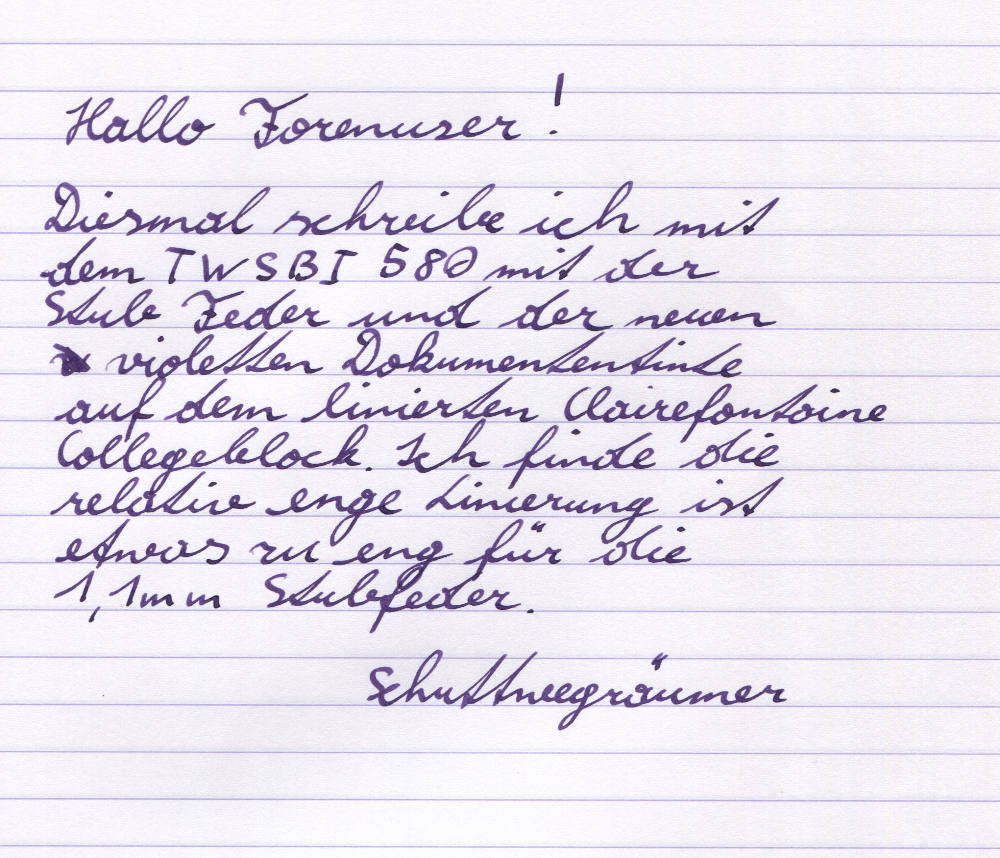 Hallo Forenuser!
Diesmal schreibe ich mit
dem TWSBI 580 mit der
Stub Feder und der neuen
violetten Dokumententinte
auf dem linierten Clairefontaine
Collegeblock. Ich finde die
relativ enge Linierung ist
etwas zu eng für die
1,1mm Stubfeder.
Schuttwegräumer